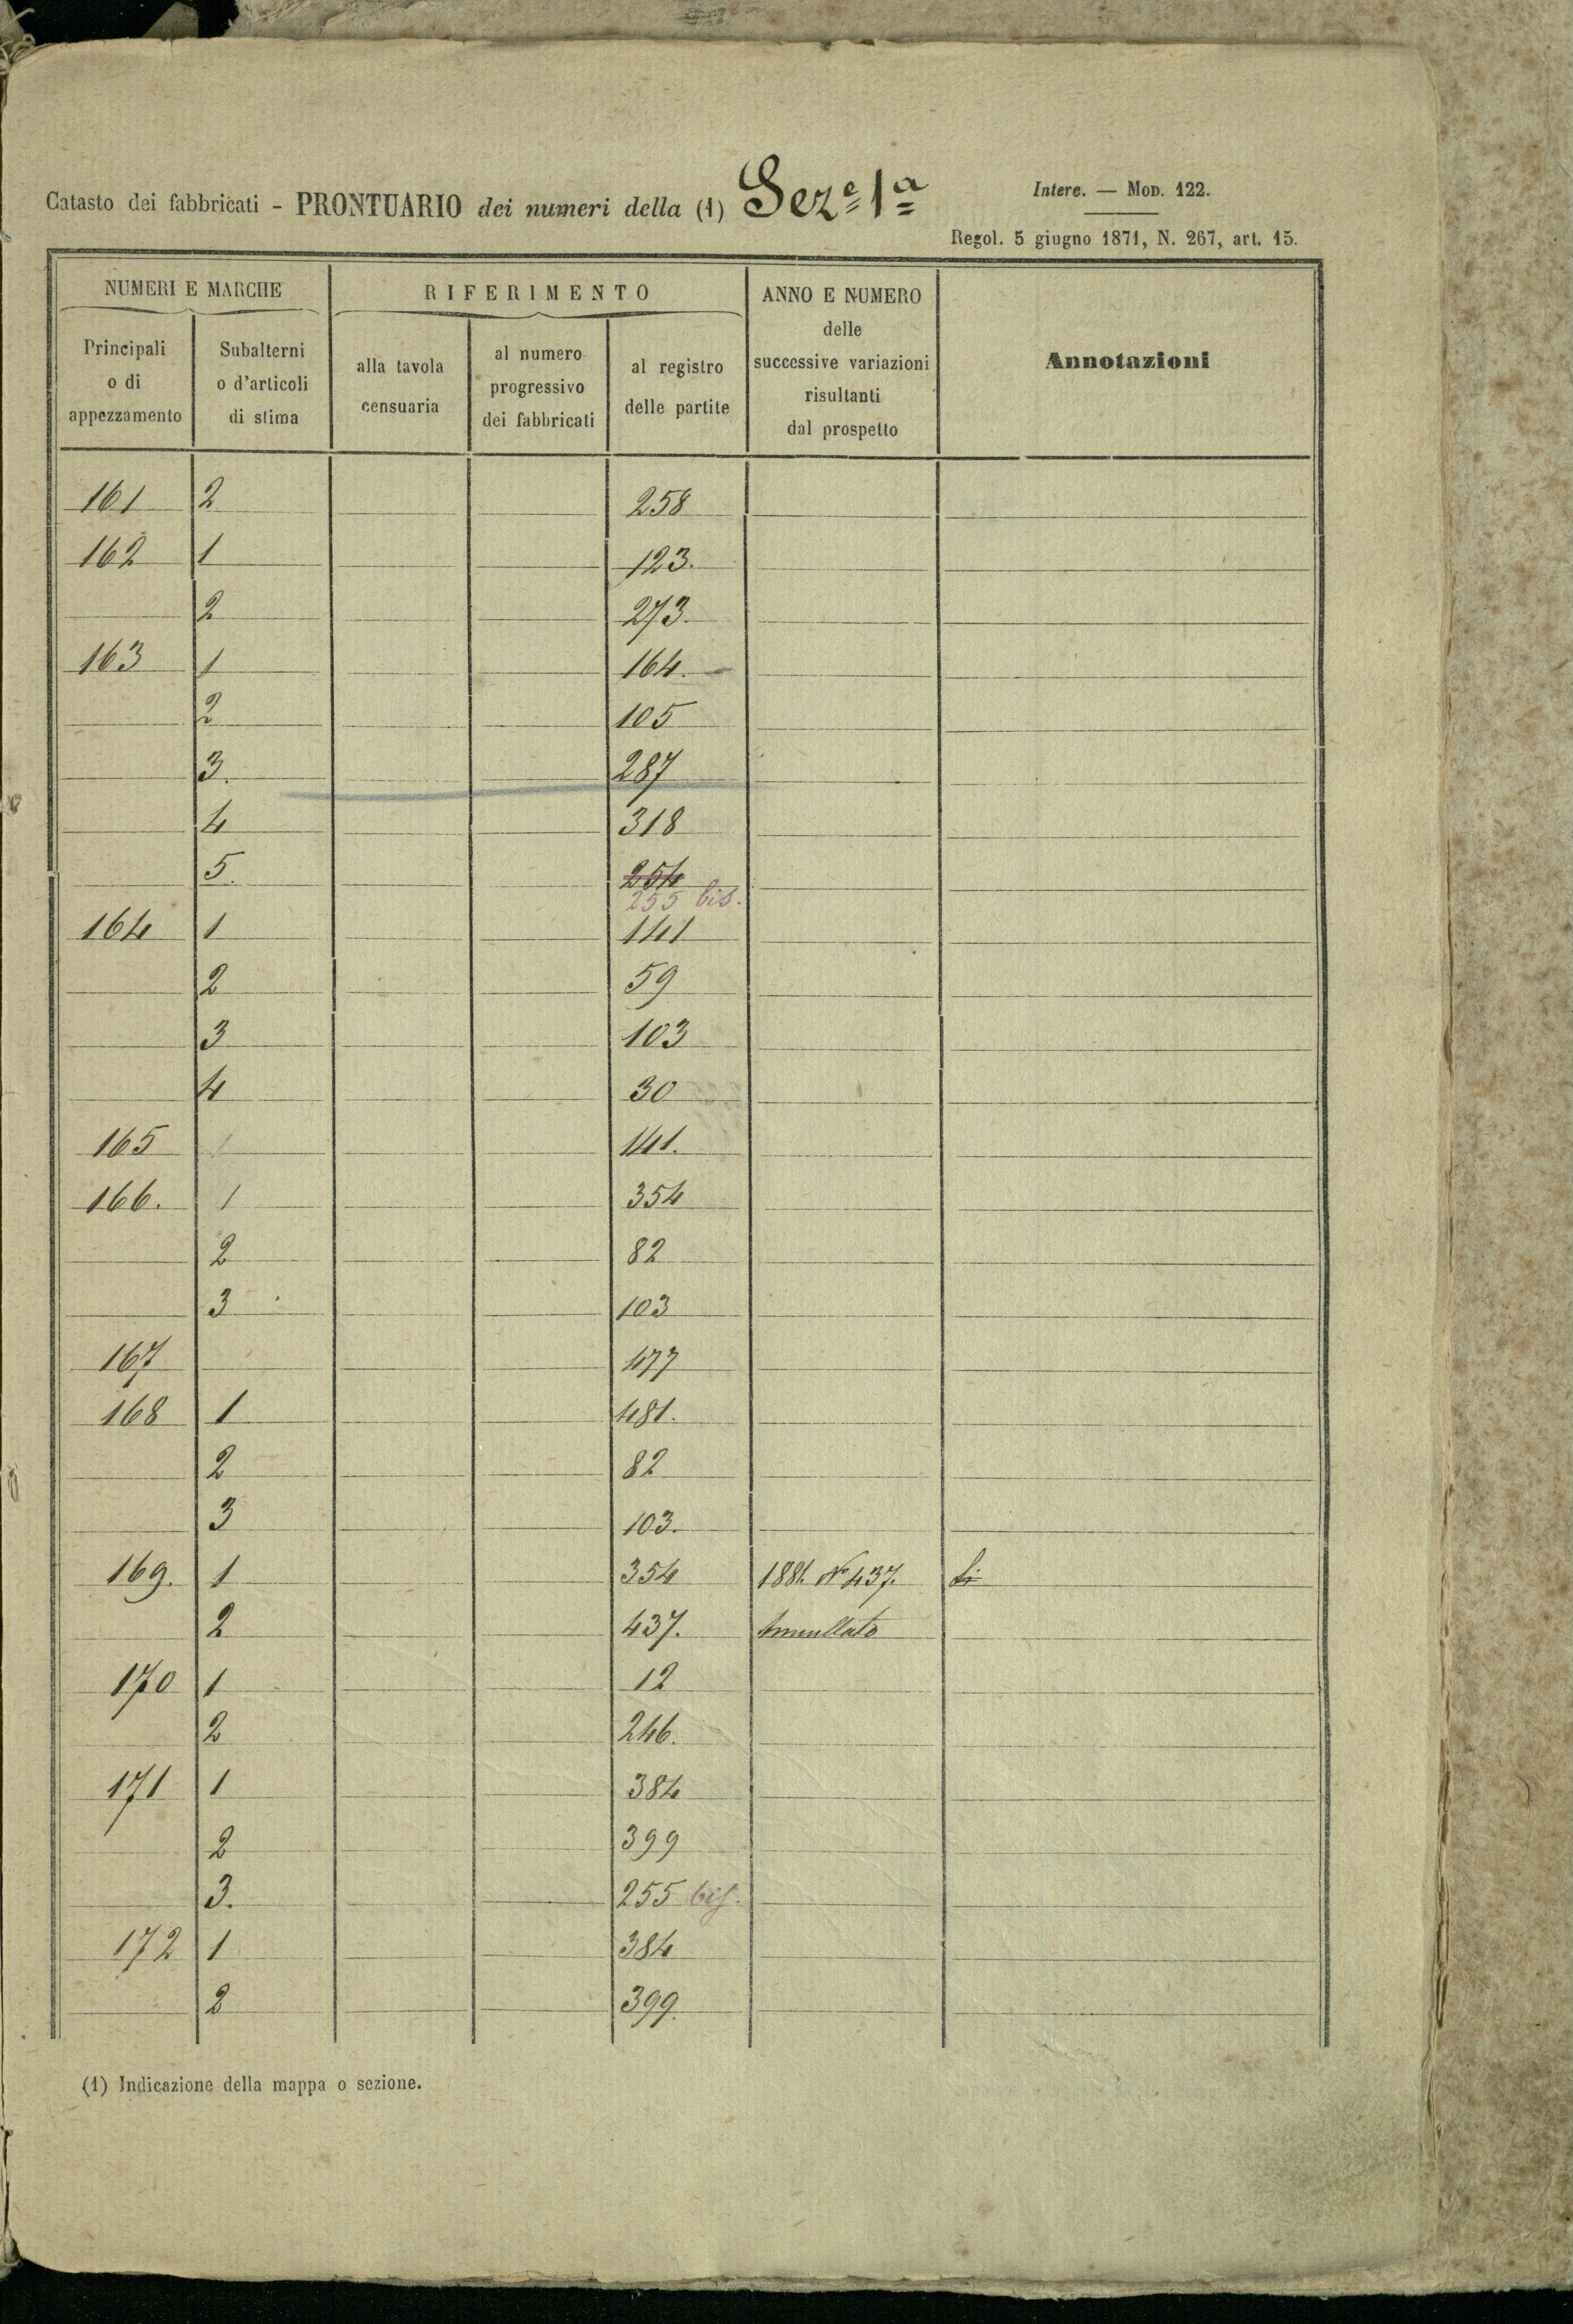 Catasto dei fabbricati - PRONTUARIO dei numeri della (1) Sez.e 1a
Interc. — Mod. 122.
Regol. 5 giugno 1871, N. 267, art. 15.
NUMERI E MARCHE
Principali o di appezzamento
Subalterni o d'articoli di stima
RIFERIMENTO
alla tavola censuaria
al numero progressivo dei fabbricati
al registro delle partite
ANNO E NUMERO delle successive variazioni risultanti dal prospetto
Annotazioni
161 2 258
162 1 123.
2 273.
163 1 164.
2 105
3. 287
4 318
5. 254
255 bis.
164 1 141
2 59
3 103
4 30
165 1 141.
166. 1 354
2 82
3 103
167 477
168 1 481.
2 82
3 103.
169. 1 354 1881. N° 437.
2 437. Annullato
170 1 12
2 246.
171 1 384
2 399
3. 255 bis.
172 1 384
2 399.
(1) Indicazione della mappa o sezione.